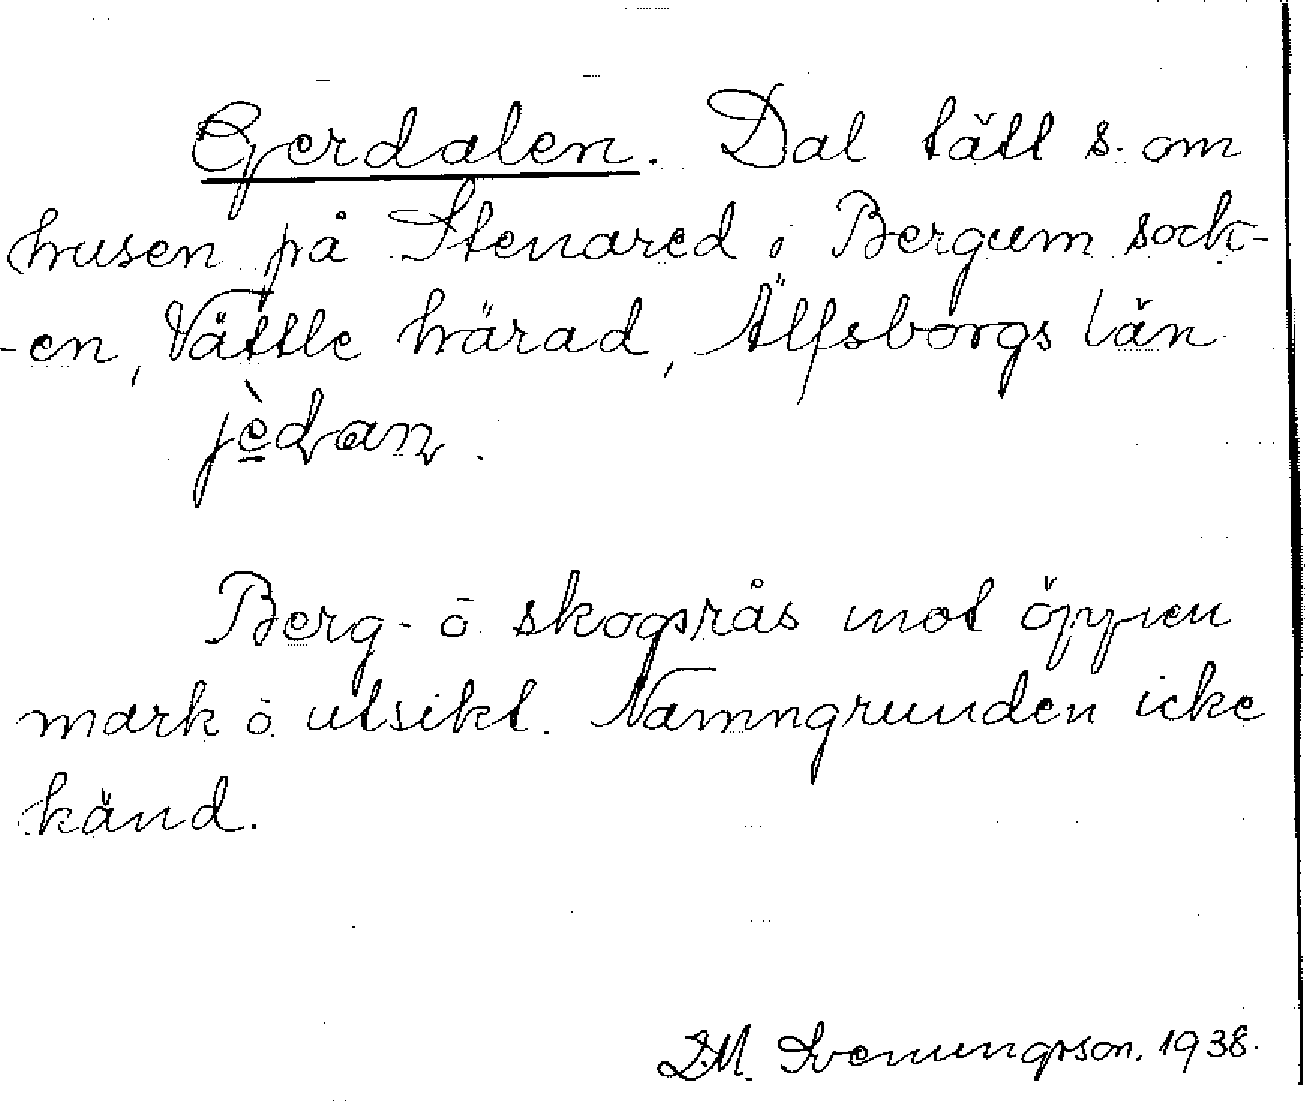 Gerdalen. Dal tätt s. om
husen på Stenared i Bergum sock-
-en, Vättle härad, Älfsborgs län
jèdan.
Berg- o skogsrås mot öppen
mark o utsikt. Namngrunden icke
känd.
D.M. Svenungsson. 1938.